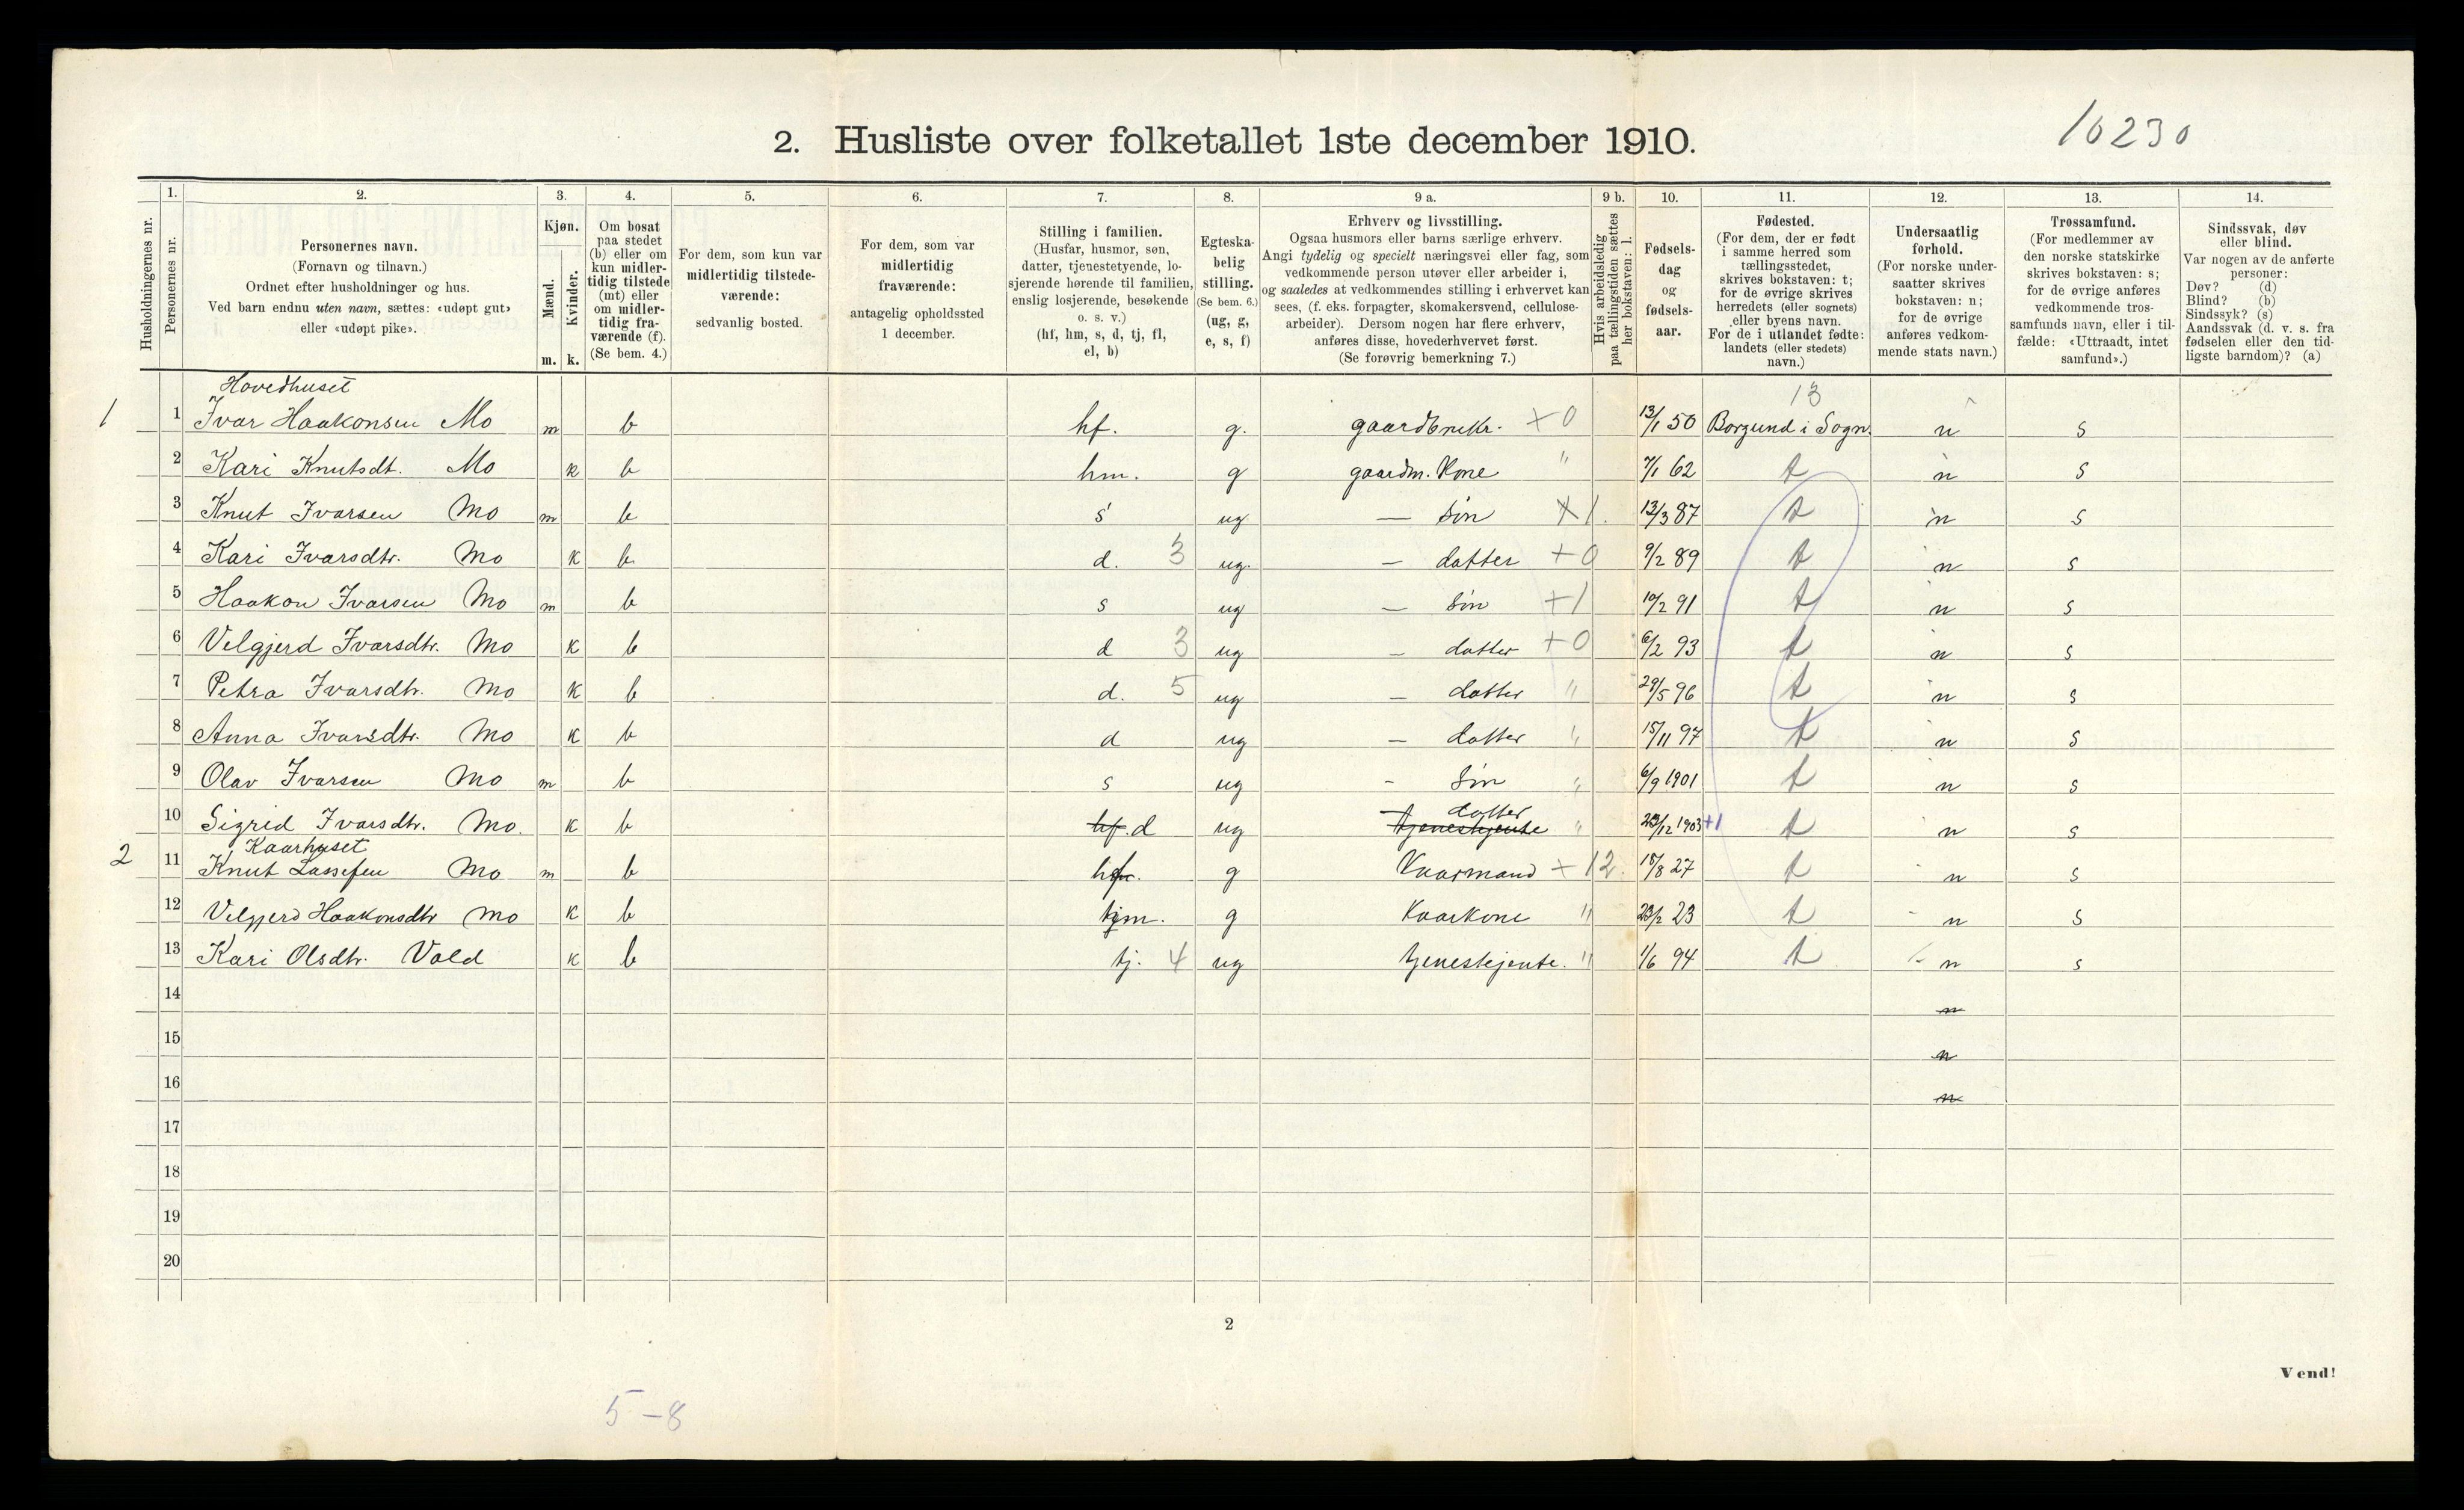 2. Husliste over folketallet 1ste december 1910.
10230
Husholdningernes nr.
1. Personernes nr.
2. Personernes navn. (Fornavn og tilnavn.) Ordnet efter husholdninger og hus. Ved barn endnu uten navn, sættes: «udøpt gut» eller «udøpt pike».
3. Kjøn. Mænd. m. Kvinder. k.
4. Om bosat paa stedet (b) eller om kun midlertidig tilstede (mt) eller om midlertidig fraværende (f). (Se bem. 4.)
5. For dem, som kun var midlertidig tilstedeværende: sedvanlig bosted.
6. For dem, som var midlertidig fraværende: antagelig opholdssted 1 december.
7. Stilling i familien. (Husfar, husmor, søn, datter, tjenestetyende, losjerende hørende til familien, enslig losjerende, besøkende o. s. v.) (hf, hm, s, d, tj, fl, el, b)
8. Egteskabelig stilling. (Se bem. 6.) (ug, g, e, s, f)
9 a. Erhverv og livsstilling. Ogsaa husmors eller barns særlige erhverv. Angi tydelig og specielt næringsvei eller fag, som vedkommende person utøver eller arbeider i, og saaledes at vedkommendes stilling i erhvervet kan sees, (f. eks. forpagter, skomakersvend, cellulosearbeider). Dersom nogen har flere erhverv, anføres disse, hovederhvervet først. (Se forøvrig bemerkning 7.)
9 b. Hvis arbeidsledig paa tællingstiden sættes her bokstaven: l.
10. Fødselsdag og fødselsaar.
11. Fødested. (For dem, der er født i samme herred som tællingsstedet, skrives bokstaven: t; for de øvrige skrives herredets (eller sognets) eller byens navn. For de i utlandet fødte: landets (eller stedets) navn.)
12. Undersaatlig forhold. (For norske undersaatter skrives bokstaven: n; for de øvrige anføres vedkommende stats navn.)
13. Trossamfund. (For medlemmer av den norske statskirke skrives bokstaven: s; for de øvrige anføres vedkommende trossamfunds navn, eller i tilfælde: «Uttraadt, intet samfund».)
14. Sindssvak, døv eller blind. Var nogen av de anførte personer: Døv? (d) Blind? (b) Sindssyk? (s) Aandssvak (d. v. s. fra fødselen eller den tidligste barndom)? (a)
Hovedhuset 13
1 1 Ivar Haakonsen Mo m b hf. g. gaardbrukr. +0 13/1 50 Borgund i Sogn. n s
2 Kari Knutsdt. Mo k b hm. g gaardm. Kone " 7/1 62 t n s
3 Knut Ivarsen Mo m b s ug — søn +1. 13/3 87 t n s
4 Kari Ivarsdtr. Mo k b d. 3 ug. — datter +0 9/2 89 t n s
5 Haakon Ivarsen Mo m b s ug — søn +1 10/2 91 t n s
6 Velgjerd Ivarsdtr. Mo k b d 3 ug — datter +0 6/2 93 t n s
7 Petra Ivarsdtr. Mo k b d. 5 ug — datter " 29/5 96 t n s
8 Anna Ivarsdtr. Mo k b d ug — datter " 15/11 97 t n s
9 Olav Ivarsen Mo m b s ug - søn " 6/9 1901 t n s
10 Sigrid Ivarsdtr. Mo. k b hf. d ug — tjenestjente datter " 23/12 1903 +1 t n s
Kaarhuset
2 11 Knut Lassesen Mo m b hf. g Kaarmand +12. 18/8 27 t n s
12 Velgjerd Haakonsdtr Mo k b hm. g Kaarkone " 23/2 23 t n s
13 Kari Olsdtr. Vold k b tj. 4 ug tjenestejente. " 1/6 94 t n s
14 n
15 n
16 n
17
18
19
20
2
Vend!
5-8